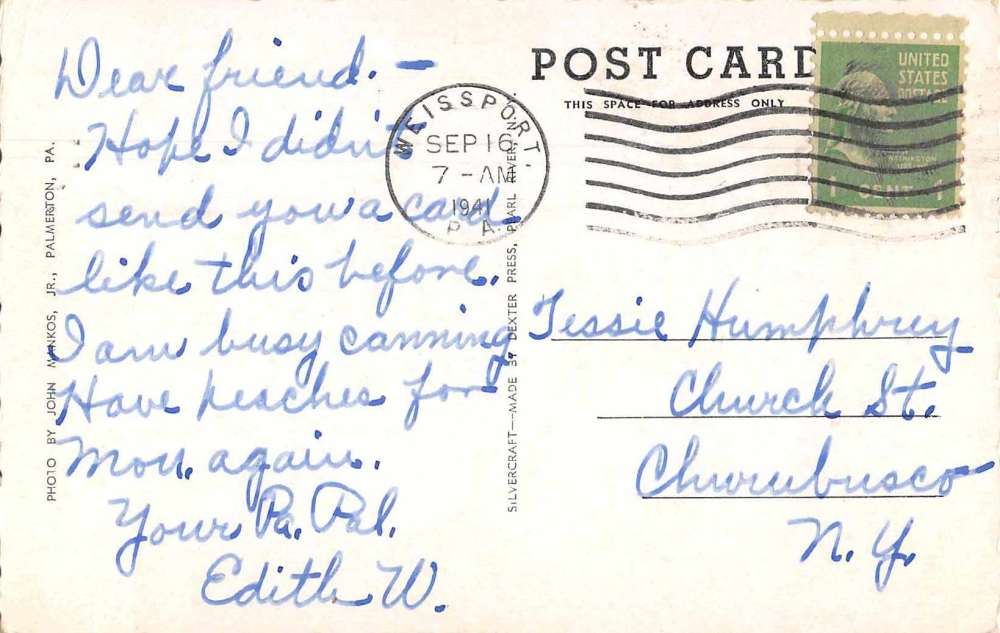 Dear friend. —
Hope I didn't
send you a card
like this before.
I am busy canning
Have peaches for
Mon. again.
Your Pa. Pal.
Edith W.
PHOTO BY JOHN MANKOS, JR., PALMERTON, PA.
SILVERCRAFT—MADE BY DEXTER PRESS, PEARL RIVER, N.Y.
POST CARD
THIS SPACE FOR ADDRESS ONLY
WEISSPORT,
SEP 16
7 - AM
1941
P A.
UNITED
STATES
POSTAGE
WASHINGTON
1 CENT 1
Tessie Humphrey
Church St.
Churubusco
N. Y.